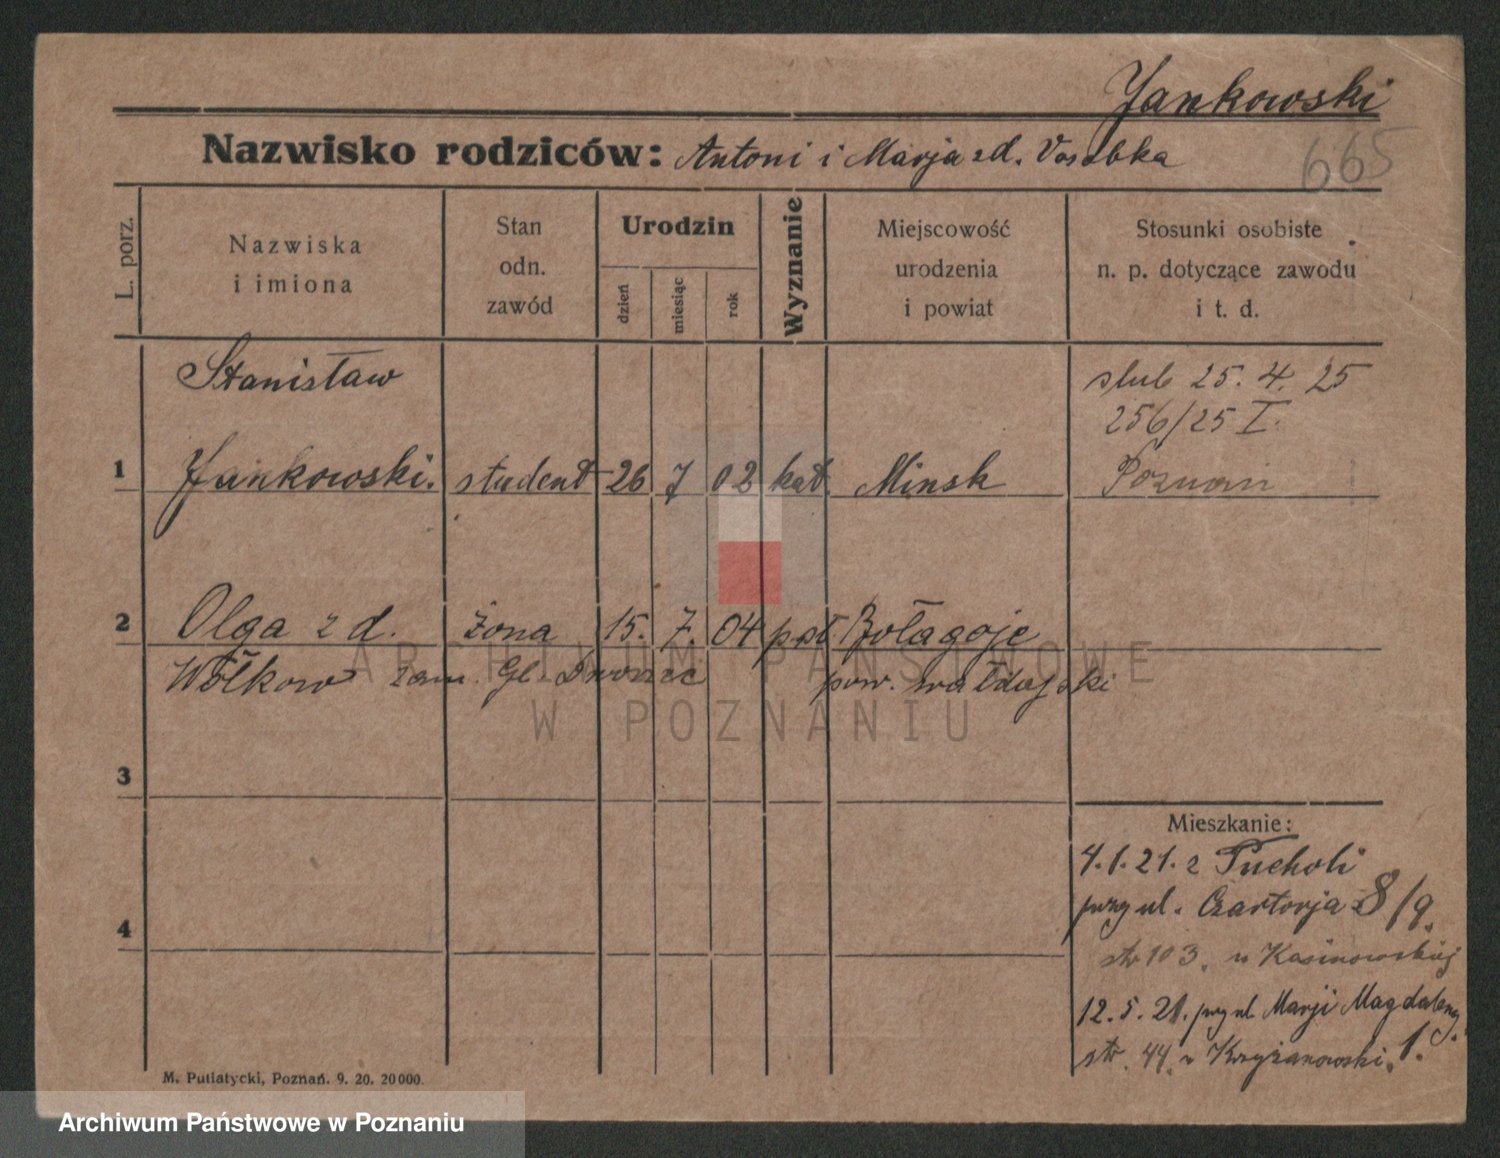 Jankowski
Nazwisko rodziców: Antoni i Marja zd.
665
L. porz.
Nazwiska i imiona
Stan odn. zawód
Urodzin
dzień
miesiąc
rok
Wyznanie
Miejscowość urodzenia i powiat
Stosunki osobiste n. p. dotyczące zawodu i t. d.
Stanisław
ślub 25. 4. 25
256/25 I.
1 Jankowski. student 26 7 02 kat. Minsk Poznań
2 Olga z d. żona 15. 7. 04 Bołagoje
Wołkow zam. Gł. Dworzec pow. wałdajski
3
Mieszkanie:
4.1.21. z Tucholi
przy ul. Czartorja 8/9.
4
str 103. u Kasinowskiej
12. 5. 21. przy ul. Marji Magdaleny
str. 44. u Krzyżanowski. 1.
M. Putiatycki, Poznań. 9. 20. 20000.
ARCHIWUM PAŃSTWOWE
W POZNANIU
Archiwum Państwowe w Poznaniu